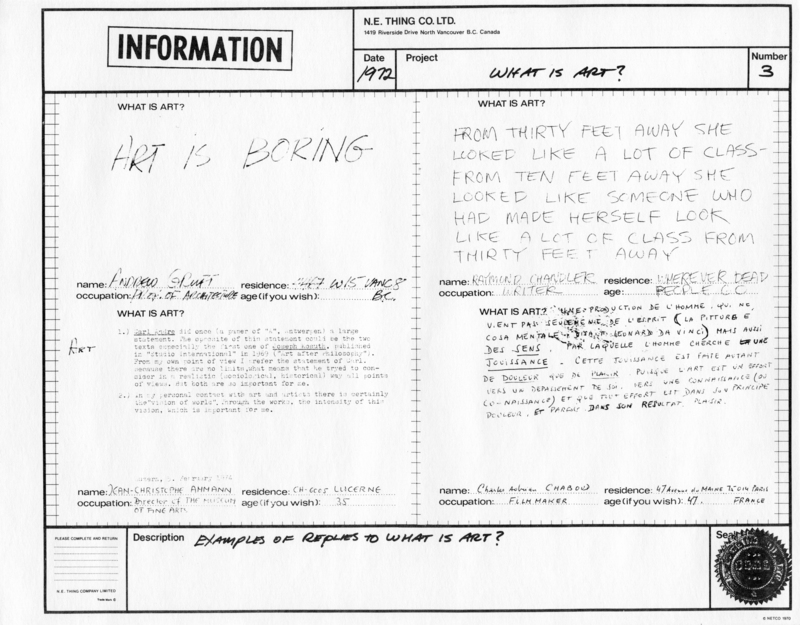 INFORMATION
N.E. THING CO. LTD.
1419 Riverside Drive North Vancouver B.C. Canada
Date
1972
Project
WHAT IS ART?
Number
3
WHAT IS ART?
ART IS BORING
name: ANDREW GRUFT residence: W15 VANC 8
occupation: PROF. OF ARCHITECTURE age (if you wish): B.C.
WHAT IS ART?
FROM THIRTY FEET AWAY SHE
LOOKED LIKE A LOT OF CLASS-
FROM TEN FEET AWAY SHE
LOOKED LIKE SOMEONE WHO
HAD MADE HERSELF LOOK
LIKE A LOT OF CLASS FROM
THIRTY FEET AWAY
name: RAYMOND CHANDLER residence: WHEREVER DEAD
occupation: WRITER age: PEOPLE GO
WHAT IS ART?
ART
1.) Carl Andre did once (a puner of "A", antwerpen) a large
statement. The opposite of this statement could be the two
texts especially the first one of Joseph Kosuth, published
in "Studio International" in 1969 ("Art after Philosophy").
From my own point of view I prefer the statement of Carl,
because there are no limits, what means that he tryed to con-
sider in a realistic (sociological, historical) way all points
of views. But both are so important for me.
2.) In my personal contact with art and artists there is certainly
the "vision of world", through the works, the intensity of this
vision, which is important for me.
February 1972
name: JEAN-CHRISTOPHE AMMANN residence: CH-6005 LUCERNE
occupation: Director of THE MUSEUM age (if you wish): 35
OF FINE ARTS
WHAT IS ART? UNE PRODUCTION DE L'HOMME, QUI NE
VIENT PAS SEULEMENT DE L'ESPRIT (LA PITTURA E
COSA MENTALE, DISAIT LEONARD DA VINCI) MAIS AUSSI
DES SENS, PAR LAQUELLE L'HOMME CHERCHE UNE
JOUISSANCE. CETTE JOUISSANCE EST FAITE AUTANT
DE DOULEUR QUE DE PLAISIR. PUISQUE L'ART EST UN EFFORT
VERS UN DEPASSEMENT DE SOI, VERS UNE CONNAISSANCE (OU
CO-NAISSANCE) ET QUE TOUT EFFORT EST DANS SON PRINCIPE
DOULEUR, ET PARFOIS DANS SON RESULTAT, PLAISIR.
name: Charles CHABOUD residence: 47 Avenue du MAINE 75014 PARIS
occupation: FILM MAKER age (if you wish): 47. FRANCE
PLEASE COMPLETE AND RETURN
N. E. THING COMPANY LIMITED
Description EXAMPLES OF REPLIES TO WHAT IS ART?
Seal
© NETCO 1970